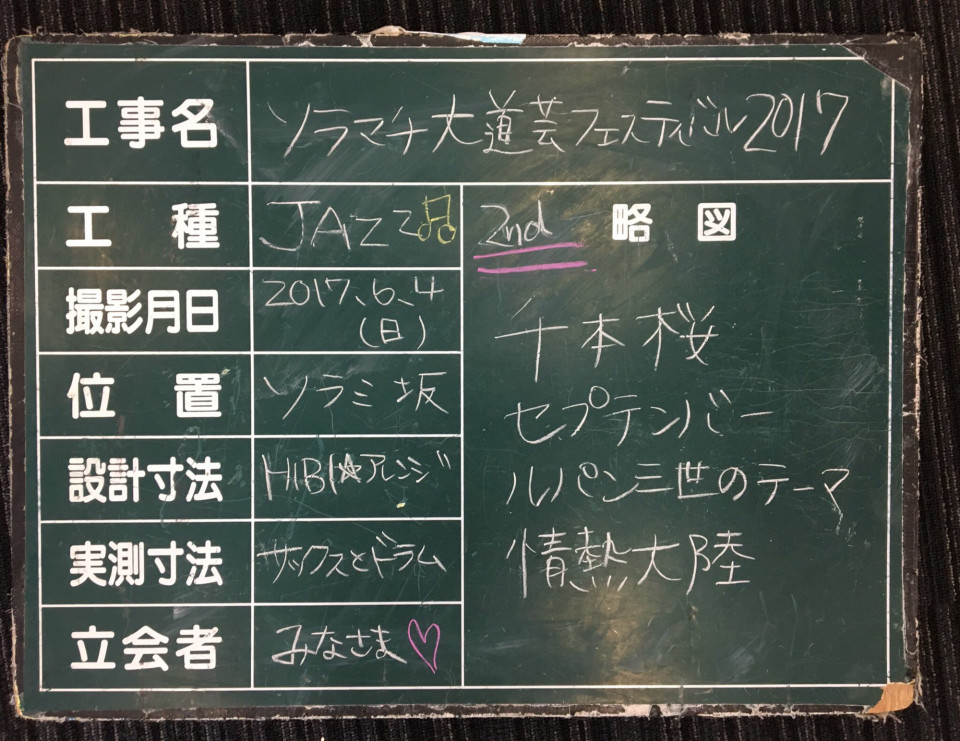 工事名 ソラマチ大道芸フェスティバル2017
工種 JAZZ♫
2nd 略図
撮影月日 2017、6、4
(日)
位置 ソラミ坂
設計寸法 HIBI☆アレンジ
実測寸法 サックスとドラム
立会者 みなさま♡
千本桜
セプテンバー
ルパン三世のテーマ
情熱大陸